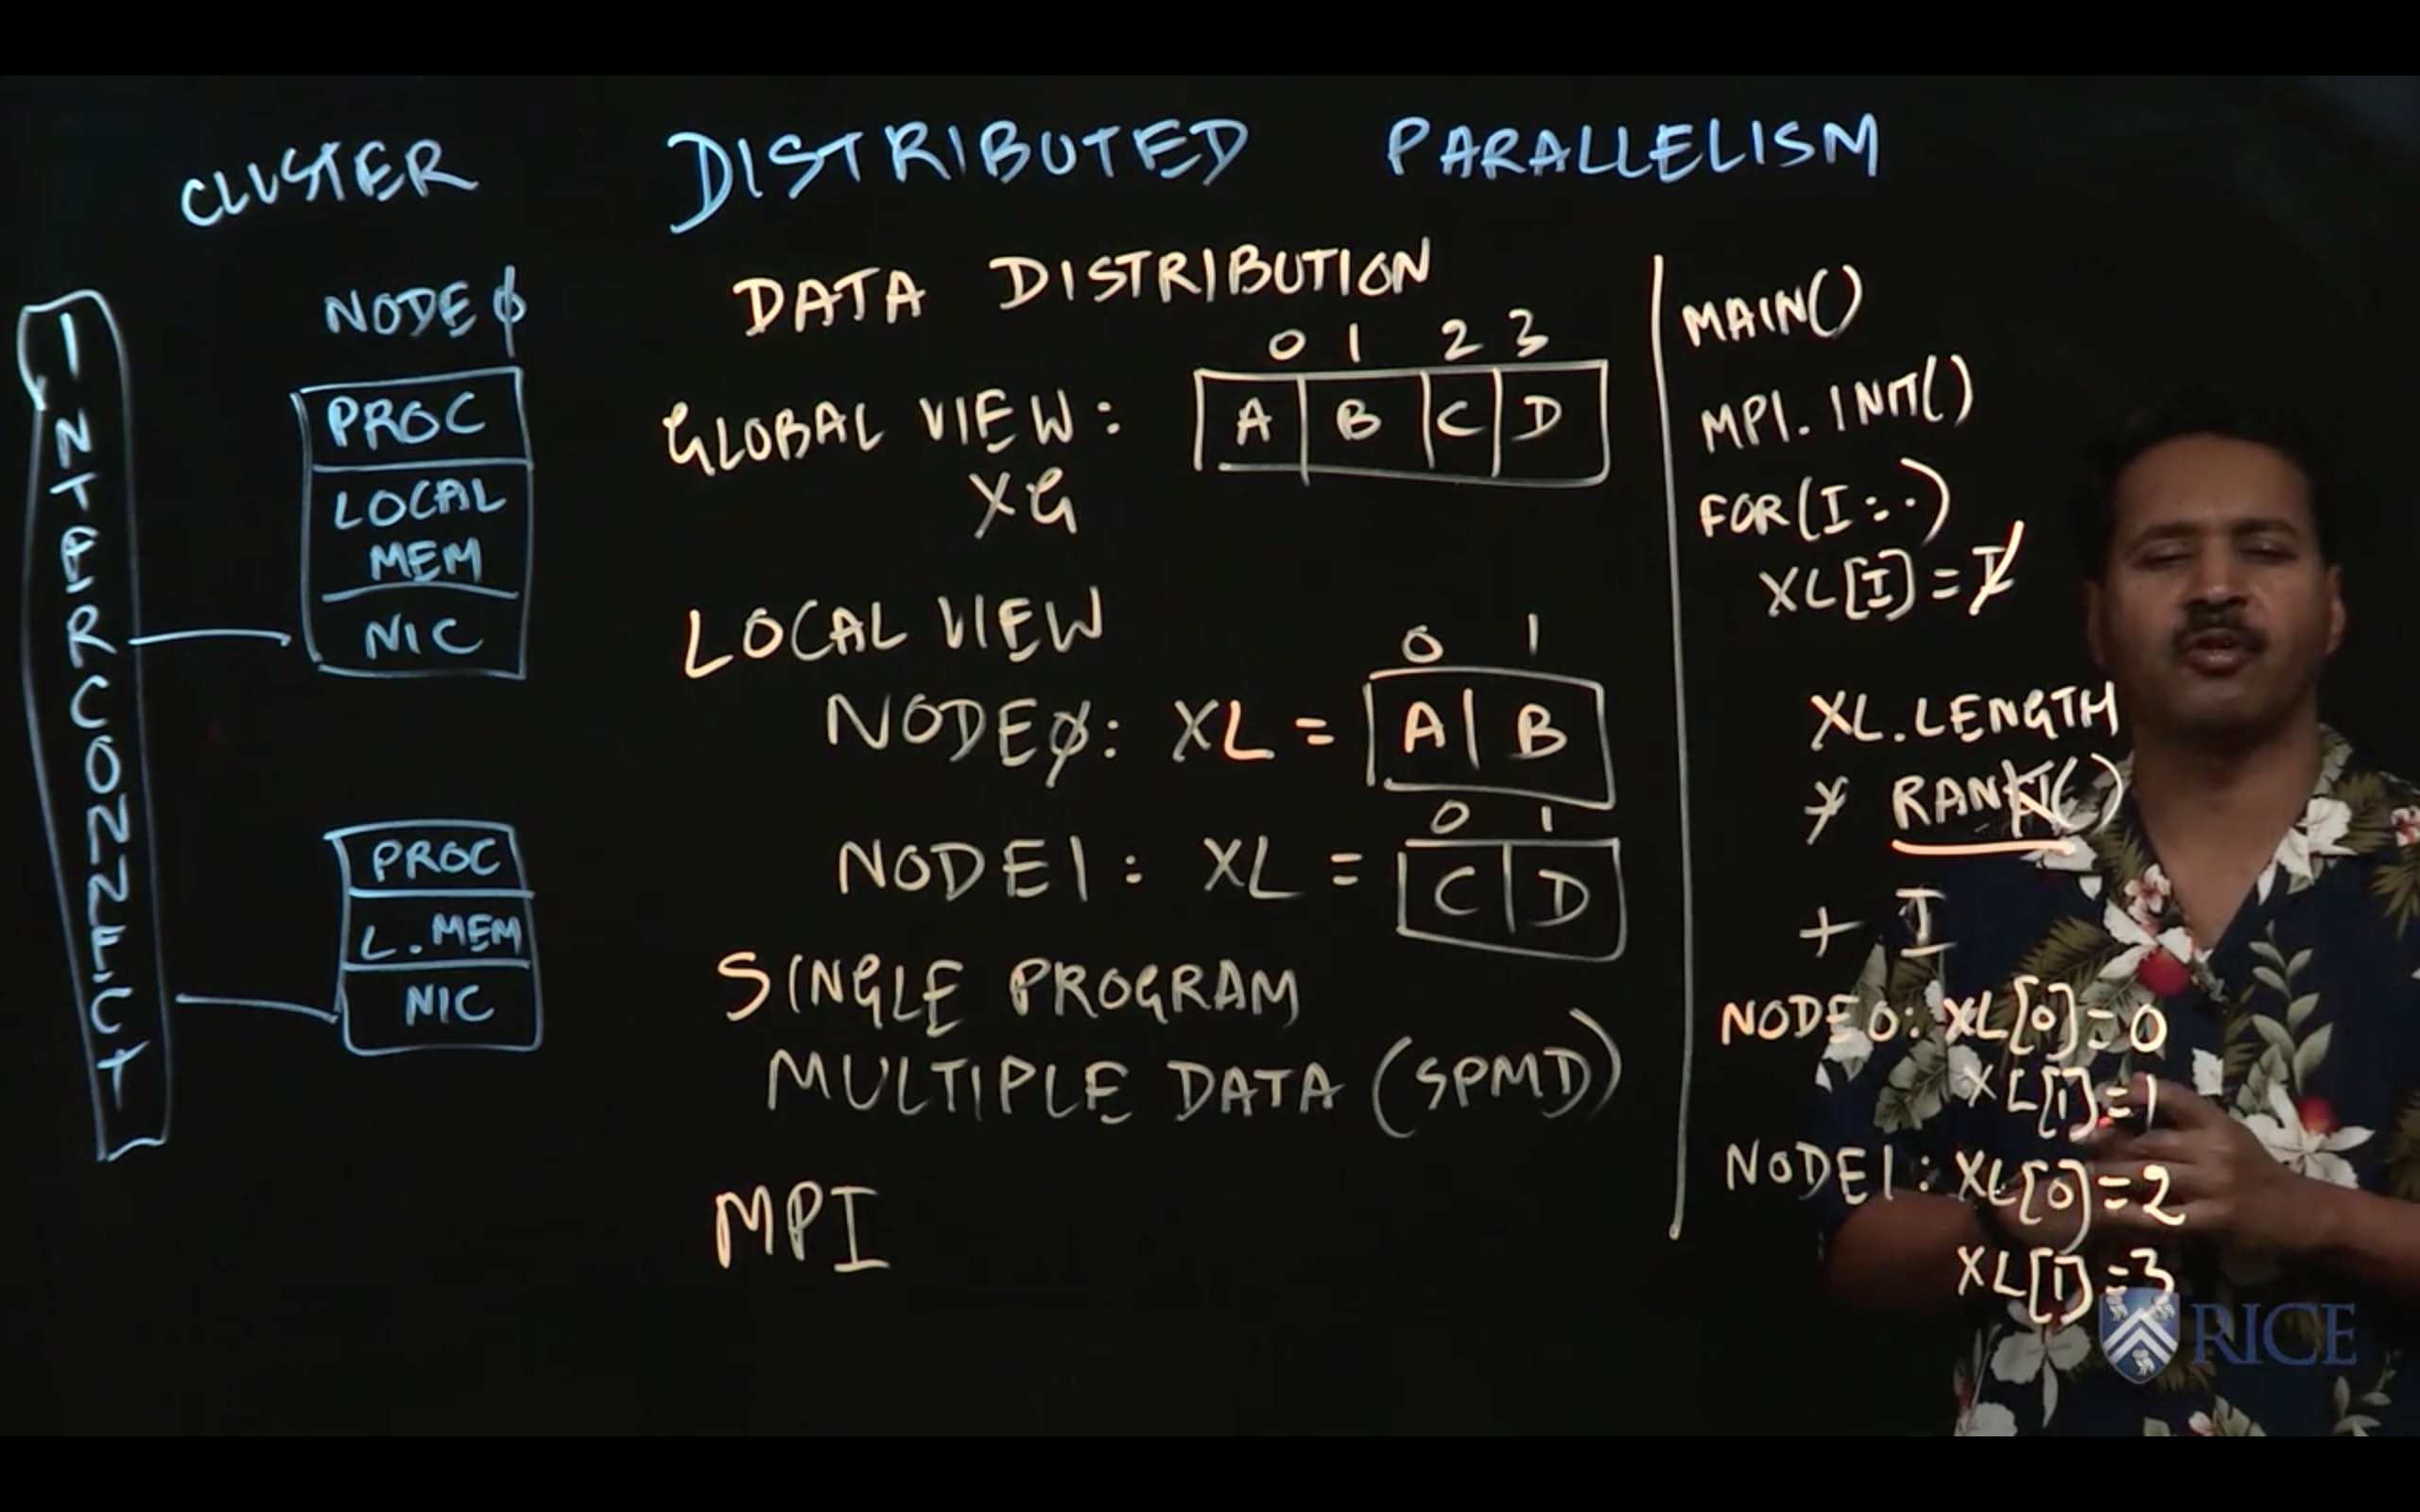 CLUSTER
DISTRIBUTED PARALLELISM
INTERCONNECT
NODE 0
PROC
LOCAL
MEM
NIC
PROC
L. MEM
NIC
DATA DISTRIBUTION
0 1 2 3
GLOBAL VIEW: A B C D
XG
LOCAL VIEW
0 1
NODE0: XL = A B
0 1
NODE1: XL = C D
SINGLE PROGRAM
MULTIPLE DATA (SPMD)
MPI
MAIN()
MPI.INIT()
FOR(I:..)
XL[I]=I
XL.LENGTH
* RANK()
+ I
NODE0: XL[0]=0
XL[1]=1
NODE1: XL[0]=2
XL[1]=3
RICE